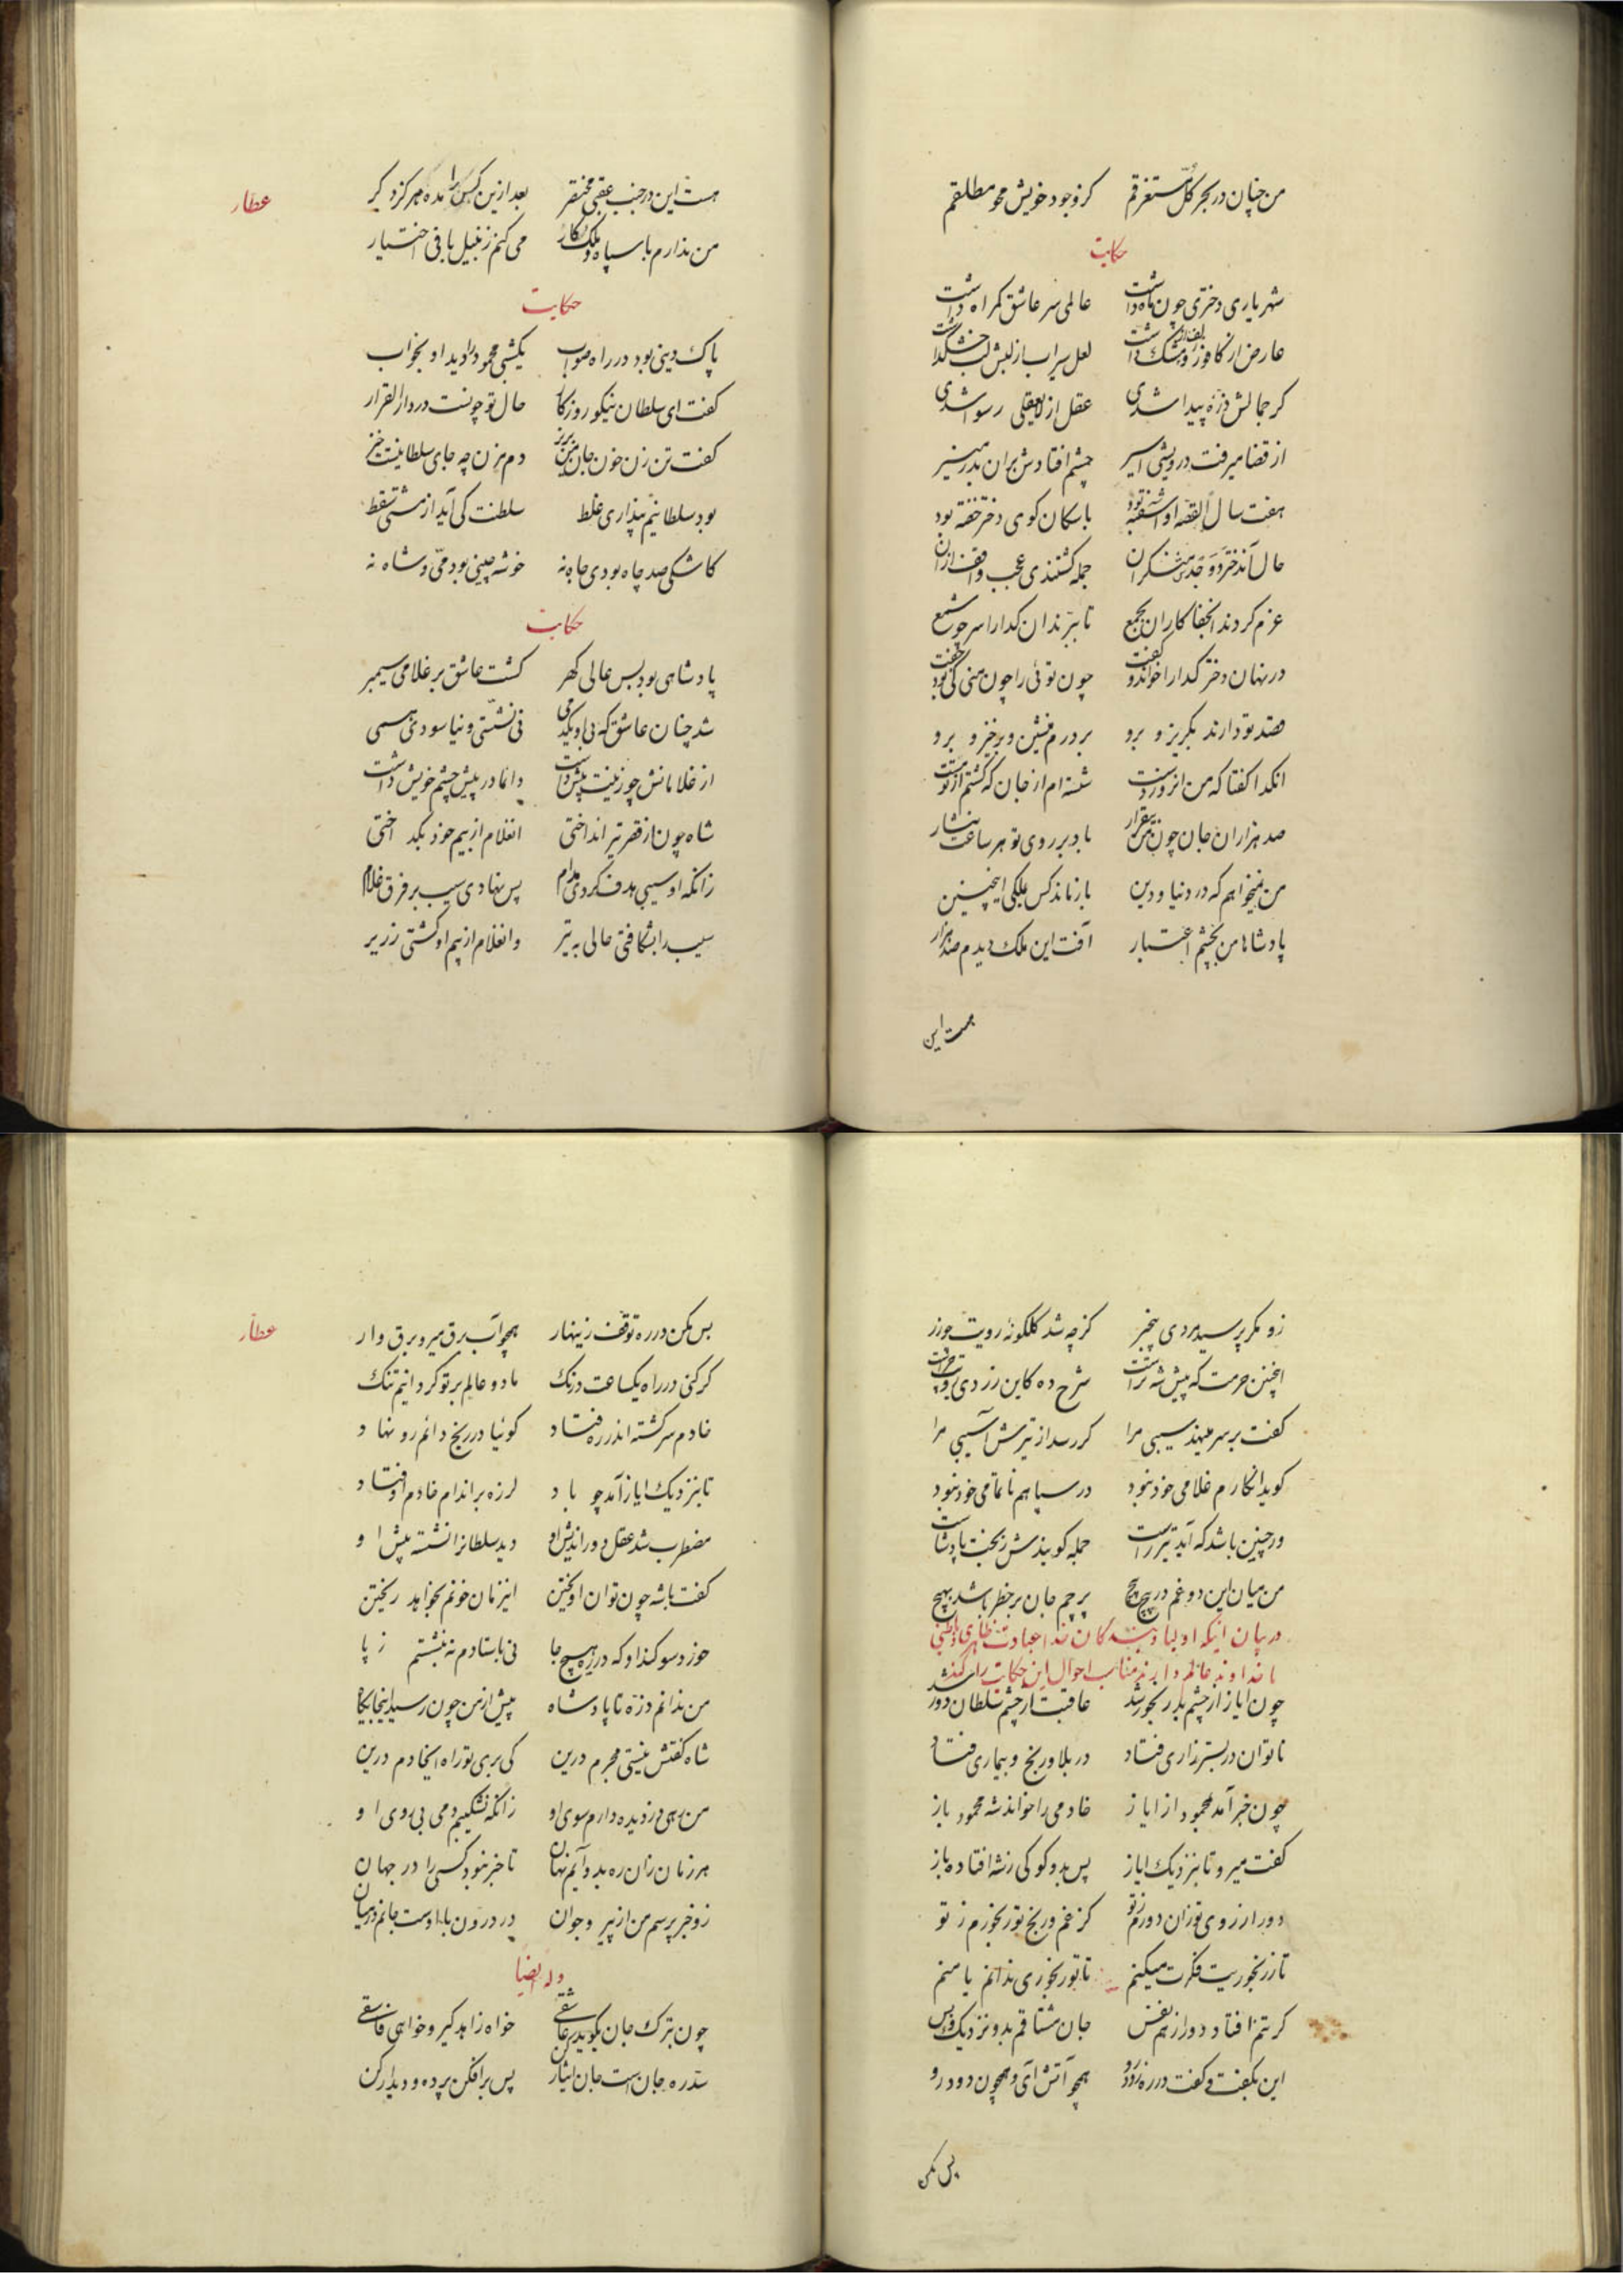 من چنان در بحر کل مستغرقم کز وجود خویش محو مطلقم
حکایت
شهریاری دختری چون ماه داشت عالمی سر عاشق گمراه داشت
عارض از کافور و زلف از مشک داشت لعل سیراب از لبش لب خشک داشت
کر جمالش ذره پیدا شدی عقل از لایعقلی رسوا شدی
از قضا میرفت درویشی اسیر چشم افتادش بران بدر منیر
هفت سال القصه او آشفته بود با سکان کوی دختر خفته بود
حال آندختر و خدمتکران جمله کشتندی عجب واقف ازان
عزم کردند انجفاکاران بجمع تا ببرندان کدا را سر چو شمع
در نهان دختر کدا را خواند و گفت چون توئی را چون منی کی بود جفت
قصد تو دارند بکریز و برو بر درم منشین و برخیز و برو
انکدا کفتا که من انروز دست شسته‌ام از جان که کشتم از تو مست
صد هزاران جان چون من بیقرار باد بر روی تو هر ساعت نثار
من نمیخواهم که در دنیا و دین باز ماند کس بملکی اینچنین
پادشاها من بچشم اعتبار آفت این ملک دیدم صد هزار
هست این
عطار
هست این در جنب عقبی مختصر بعد ازین کس را مده هرکز دکر
من ندارم با سپاه و ملک کار می کنم زنبیل بافی اختیار
حکایت
پاک دینی بود در راه صواب یکشبی محمود را دید او بخواب
کفت ای سلطان نیکو روزکار حال تو چونست در دار القرار
کفت تن زن خون جان من مریز دم مزن چه جای سلطانیست خیز
بود سلطانیم پنداری غلط سلطنت کی آید از مشتی سقط
کاشکی صد چاه بودی جاه نه خوشه چینی بودمی و شاه نه
حکایت
پادشاهی بود بس عالی کهر کشت عاشق بر غلامی سیمبر
شد چنان عاشق که بی او یکدمی نی نشستی و نیاسودی همی
از غلامانش چو زینت پیش داشت دائما در پیش چشم خویش داشت
شاه چون از قصر تیر انداختی انغلام از بیم خود بکداختی
زانکه او سیبی هدف کردی مدام پس نهادی سیب بر فرق غلام
سیب را بشکافتی حالی به تیر وانغلام از بیم او کشتی زریر
زو مکر پرسید مردی بیخبر کز چه شد کلکونه رویت چو زر
اینچنین حرمت که پیش شه تراست شرح ده کاین زردی رویت چراست
کفت بر سر مینهد سیبی مرا کر رسد از تیرش آسیبی مرا
کوید انکارم غلامی خود نبود در سپاهم ناتمامی خود نبود
ور چنین باشد که آید تیر راست جمله کویندش ز بخت پادشاست
من میان این دو غم در پیچ پیچ بر چیم جان بر خطر باشد بهیچ
در بیان اینکه اولیا و بندگان خدا عبادت ظاهری و باطنی
با خداوند عالم دارند مناسب احوال این حکایت را کفته شد
چون ایاز از چشم بد رنجور شد عاقبت از چشم سلطان دور شد
ناتوان در بستر زاری فتاد در بلا و رنج و بیماری فتاد
چون خبر آمد بمحمود از ایاز خادمی را خواند شه محمود باز
کفت میرو تا بنزدیک ایاز پس بدو کو کی ز شه افتاده باز
دور از روی تو زان دورم ز تو کز غم و رنج تو رنجورم ز تو
تا ز رنجوریت فکرت میکنم تا تو رنجوری ندانم یا منم
کر تنم افتاد دور از هم نفس جان مشتاقم بدو نزدیک و بس
این بکفت و کفت در ره زود رو همچو آتش آی و همچون دود رو
پس مکن
عطار
پس مکن در ره توقف زینهار همچو آب برق میرو برق وار
کر کنی در راه یکساعت درنک ما دو عالم بر تو کردانیم تنک
خادم سرکشته اندر ره فتاد کوئیا در رنج دائم رو نهاد
تا بنزدیک ایاز آمد چو باد لرزه بر اندام خادم اوفتاد
مضطرب شد عقل دوراندیش او دید سلطانرا نشسته پیش او
کفت با شه چون توان اویختن اینزمان خونم بخواهد ریختن
خورد سوکند او که در ره هیچ جا نی باستادم نه بنشستم ز پا
من ندانم ذره تا پادشاه پیش از من چون رسید اینجایکاه
شاه کفتش نیستی محرم درین کی بری تو راه ایخادم درین
من رهی دزدیده دارم سوی او زانکه نشکیبم دمی بی روی او
هر زمان زان ره بدو آیم نهان تا خبر نبود کسی را در جهان
زو خبر پرسم من از پیر و جوان در درون با اوست جانم در میان
وله ایضا
چون بترک جان بکوید عاشقی خواه زاهد کیر و خواهی فاسقی
سد ره جان است جان ایثار کن پس برافکن پرده و دیدار کن